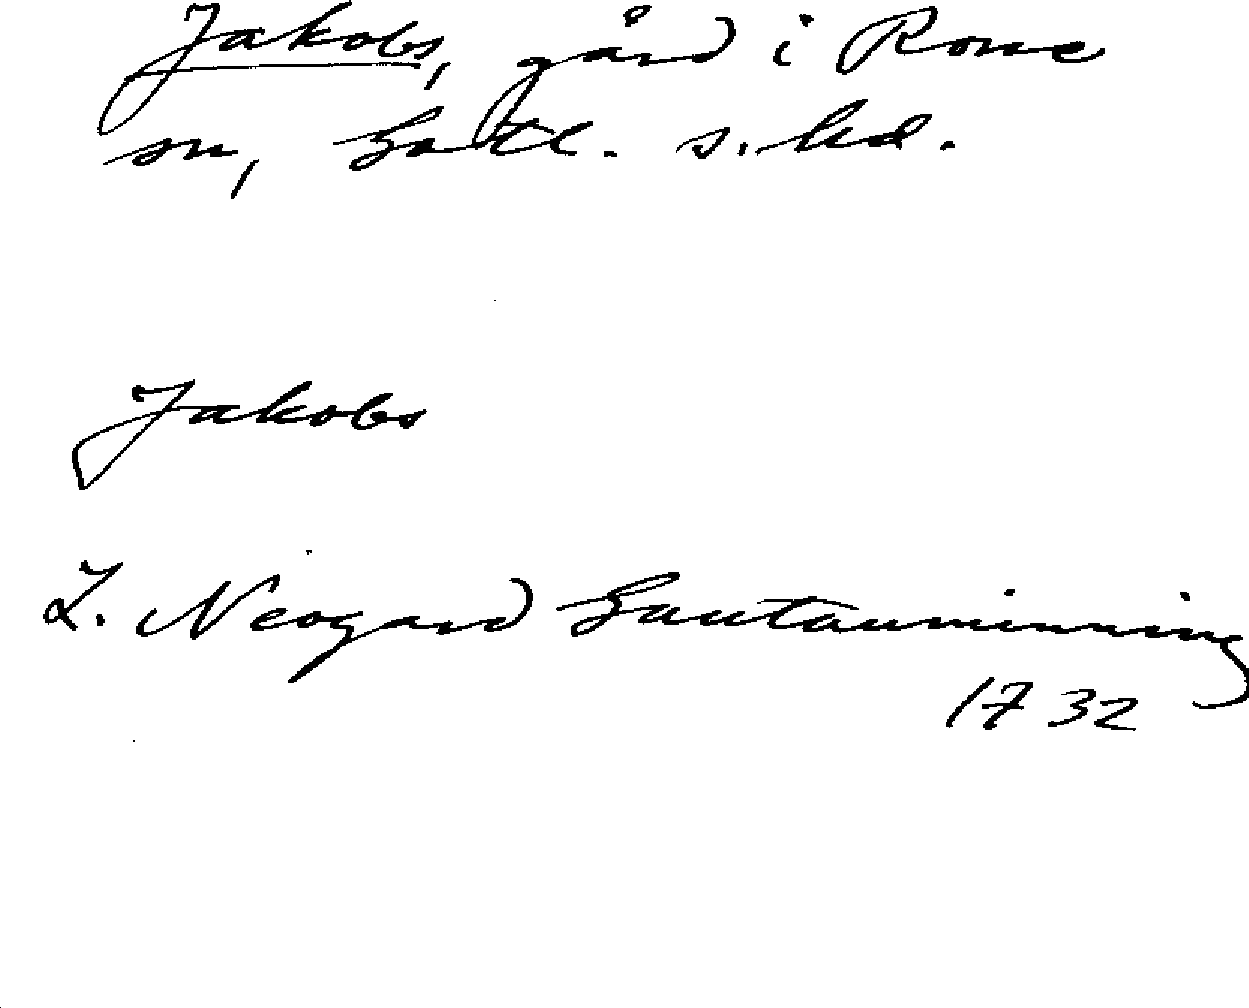 Jakobs, gård i Rone
sn, Gotl. s. hd.
Jakobs
Z. Neogard Gautauminning
1732